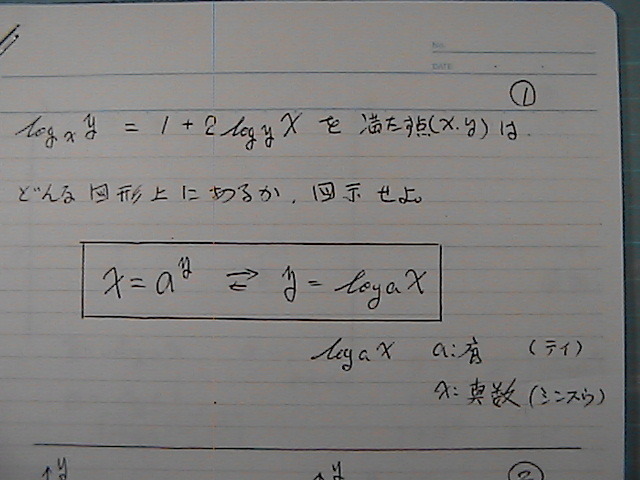 NO.
DATE
①
log_x y = 1 + 2 log_y X を 満たす点(x.y)は.
どんな図形上にあるか、図示せよ。
x = a^y ⇄ y = log a x
log a x a: (テイ)
x: 真数(シンスウ)
↑y ↑y ②